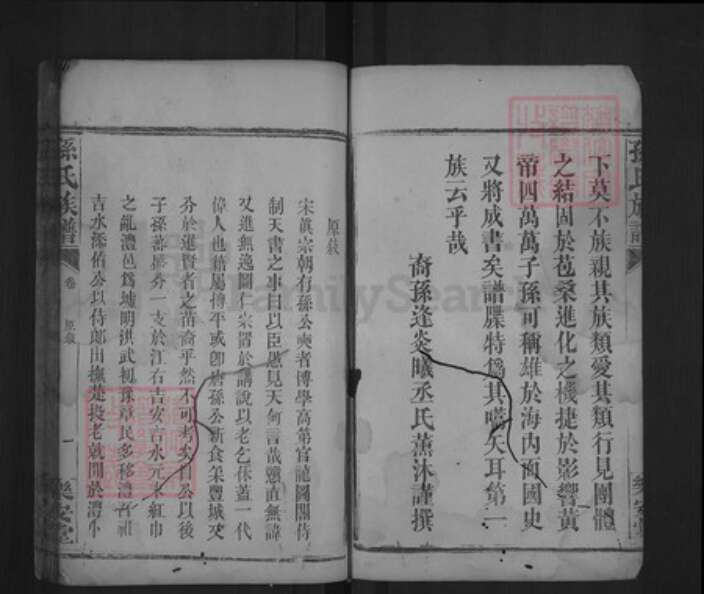 下莫不族親其族類愛其類行見團體
之結固於苞桑進化之機捷於影響黃
帝四萬萬子孫可稱雄於海內而國史
又將成書矣譜牒特為其嚆矢耳第一
族云乎哉
裔孫逢炎曦丞氏薰沐謹撰
孫氏族譜
樂安堂
原敍
宋眞宗朝有孫公奭者博學高第官龍圖閣侍
制天書之事曰以臣愚見天何言哉戇直無諱
又進無逸圖仁宗置於講說以老乞休蓋一代
偉人也籍屬博平或卽唐孫公新食采豐城又
分於進賢者之苗裔乎然不可考矣自公以後
子孫蕃衍分一支於江右吉安吉水元末紅巾
之亂澧邑為墟明洪武初豫章民多移澧者祖
吉水添佑公以侍郎出撫楚投老就閒於澧小
孫氏族譜
卷
原敍
一
樂安堂
FamilySearch